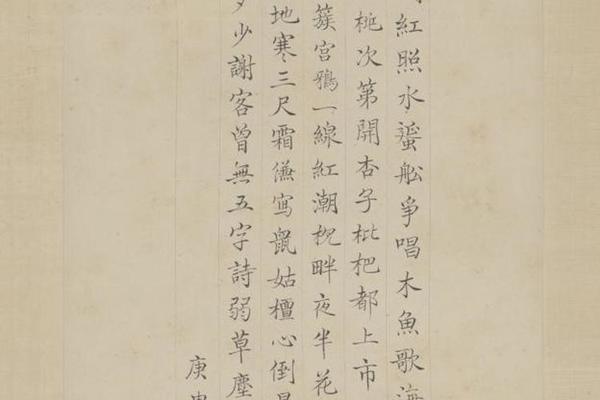 紅照水蜑船爭唱木魚歌海
桃次第開杏子枇杷都上市
簇宮鴉一線紅潮枕畔夜半花
地寒三尺霜縑寫鼠姑檀心倒
少謝客曾無五字詩弱草塵
庚